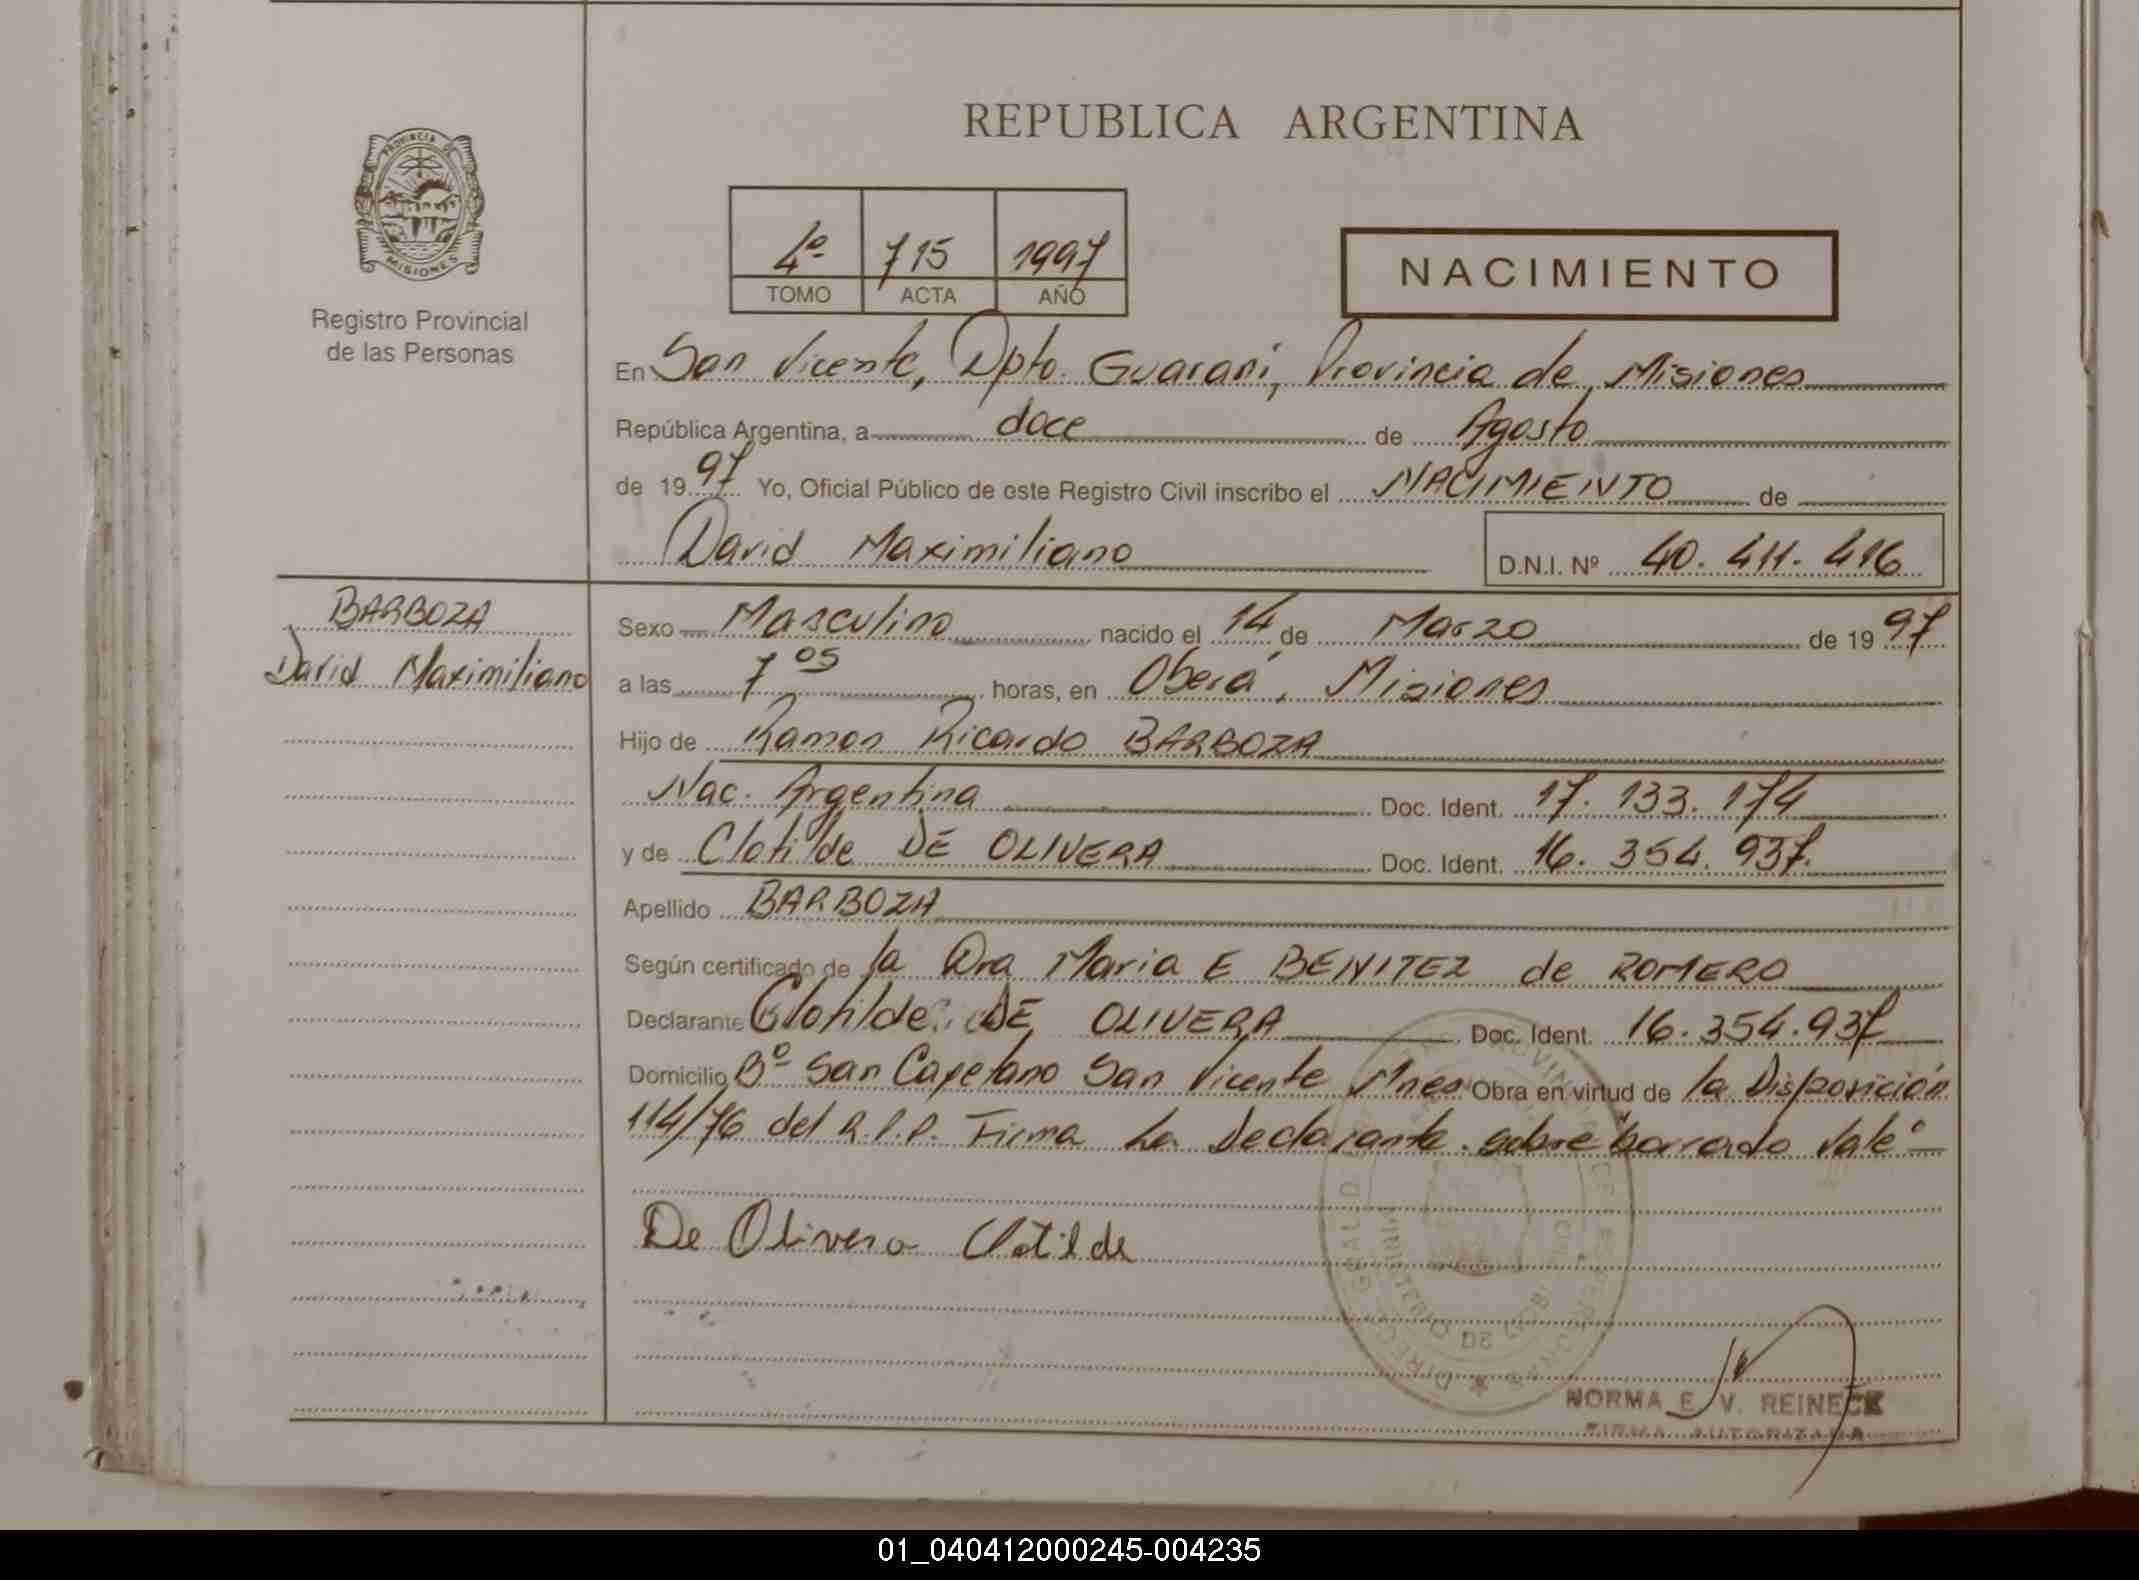 REPUBLICA ARGENTINA
PROVINCIA DE
MISIONES
Registro Provincial
de las Personas
4º 715 1997
TOMO ACTA AÑO
NACIMIENTO
En San Vicente, Dpto. Guaraní, Provincia de Misiones
República Argentina, a doce de Agosto
de 1997 Yo, Oficial Público de este Registro Civil inscribo el NACIMIENTO de
David Maximiliano D.N.I. Nº 40.411.416
BARBOZA
David Maximiliano
Sexo Masculino nacido el 14 de Marzo de 1997
a las 7 05 horas, en Oberá, Misiones
Hijo de Ramon Ricardo BARBOZA
Nac. Argentina Doc. Ident. 17.133.174
y de Clotilde DE OLIVERA Doc. Ident. 16.354.937.
Apellido BARBOZA
Según certificado de la Dra Maria E BENITEZ de ROMERO
Declarante Clotilde DE OLIVERA Doc. Ident. 16.354.937
Domicilio Bº San Cayetano San Vicente Mnes Obra en virtud de la Disposición
114/76 del R.P.P. Firma La Declarante. sobre borrado Vale
De Olivera Clotilde
NORMA E. V. REINECK
FIRMA AUTORIZADA
01_040412000245-004235